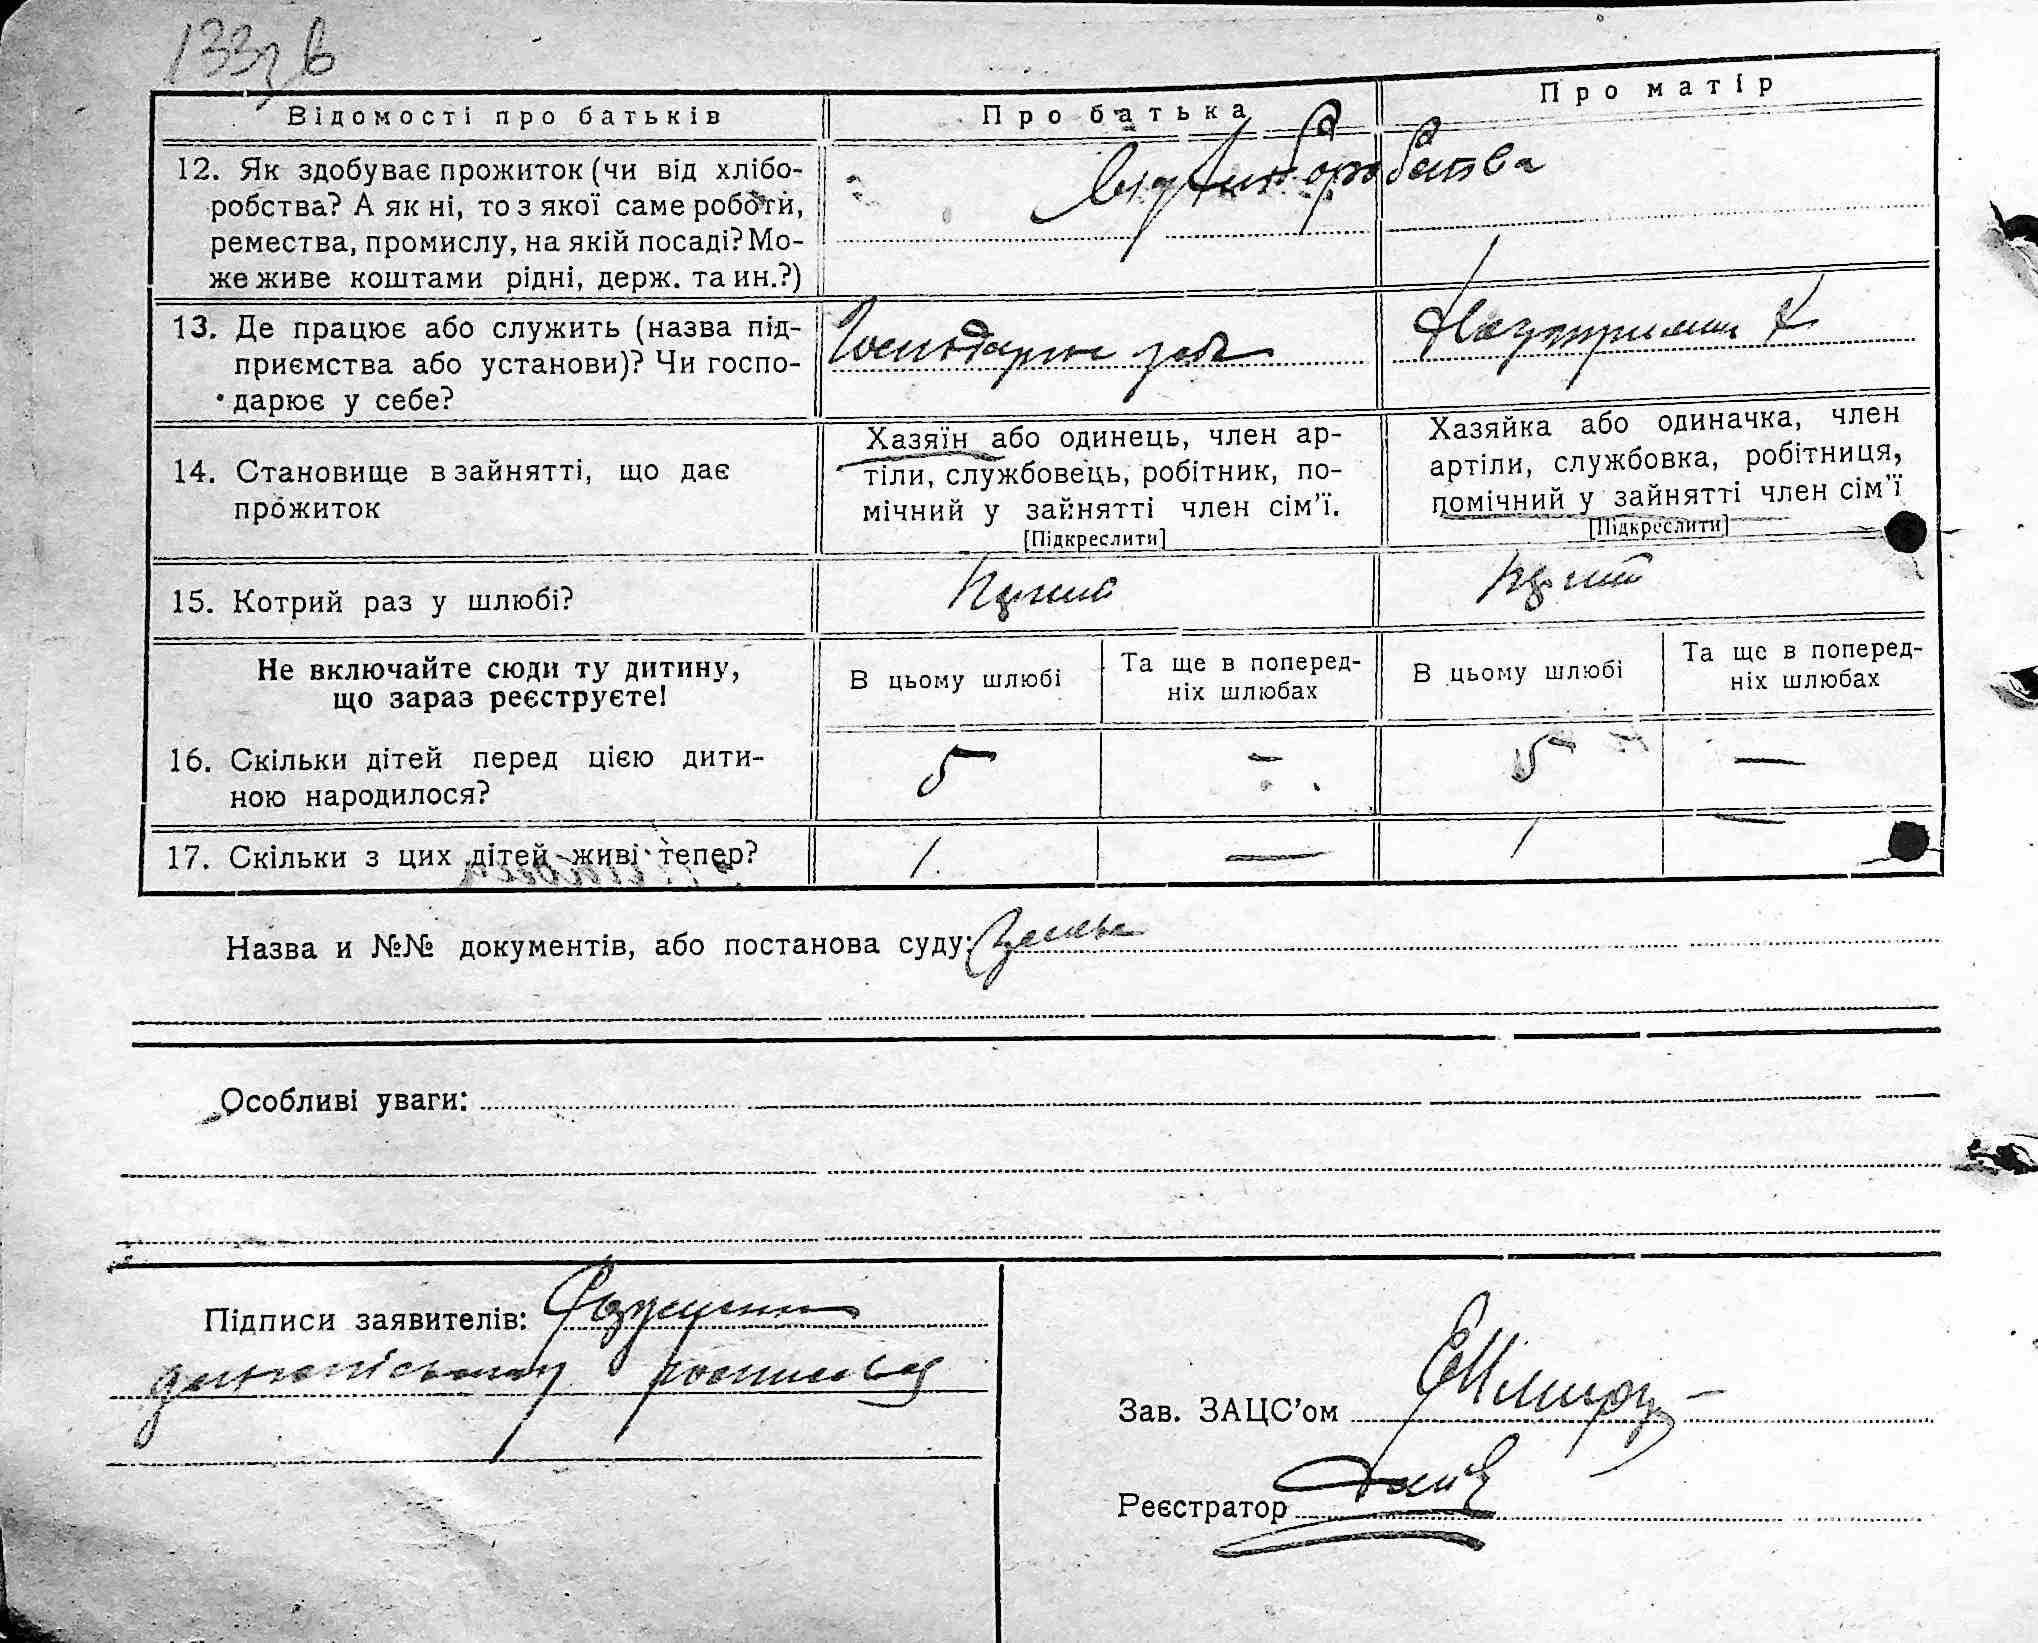 133 в
Відомості про батьків
Про батька
Про матір
12. Як здобуває прожиток (чи від хлібо-
робства? А як ні, то з якої саме роботи,
ремества, промислу, на якій посаді? Мо-
же живе коштами рідні, держ. та ин.?)
від хліборобства
13. Де працює або служить (назва під-
приємства або установи)? Чи госпо-
дарює у себе?
14. Становище в зайнятті, що дає
прожиток
Хазяїн або одинець, член ар-
тіли, службовець, робітник, по-
мічний у зайнятті член сім'ї.
[Підкреслити]
Хазяйка або одиначка, член
артіли, службовка, робітниця,
помічний у зайнятті член сім'ї
[Підкреслити]
15. Котрий раз у шлюбі?
Не включайте сюди ту дитину,
що зараз реєструєте!
В цьому шлюбі
Та ще в поперед-
ніх шлюбах
В цьому шлюбі
Та ще в поперед-
ніх шлюбах
16. Скільки дітей перед цією дити-
ною народилося?
5 — 5 —
17. Скільки з цих дітей живі тепер?
1 — 1 —
Назва и №№ документів, або постанова суду:
Особливі уваги:
Підписи заявителів:
Зав. ЗАЦС'ом
Реєстратор